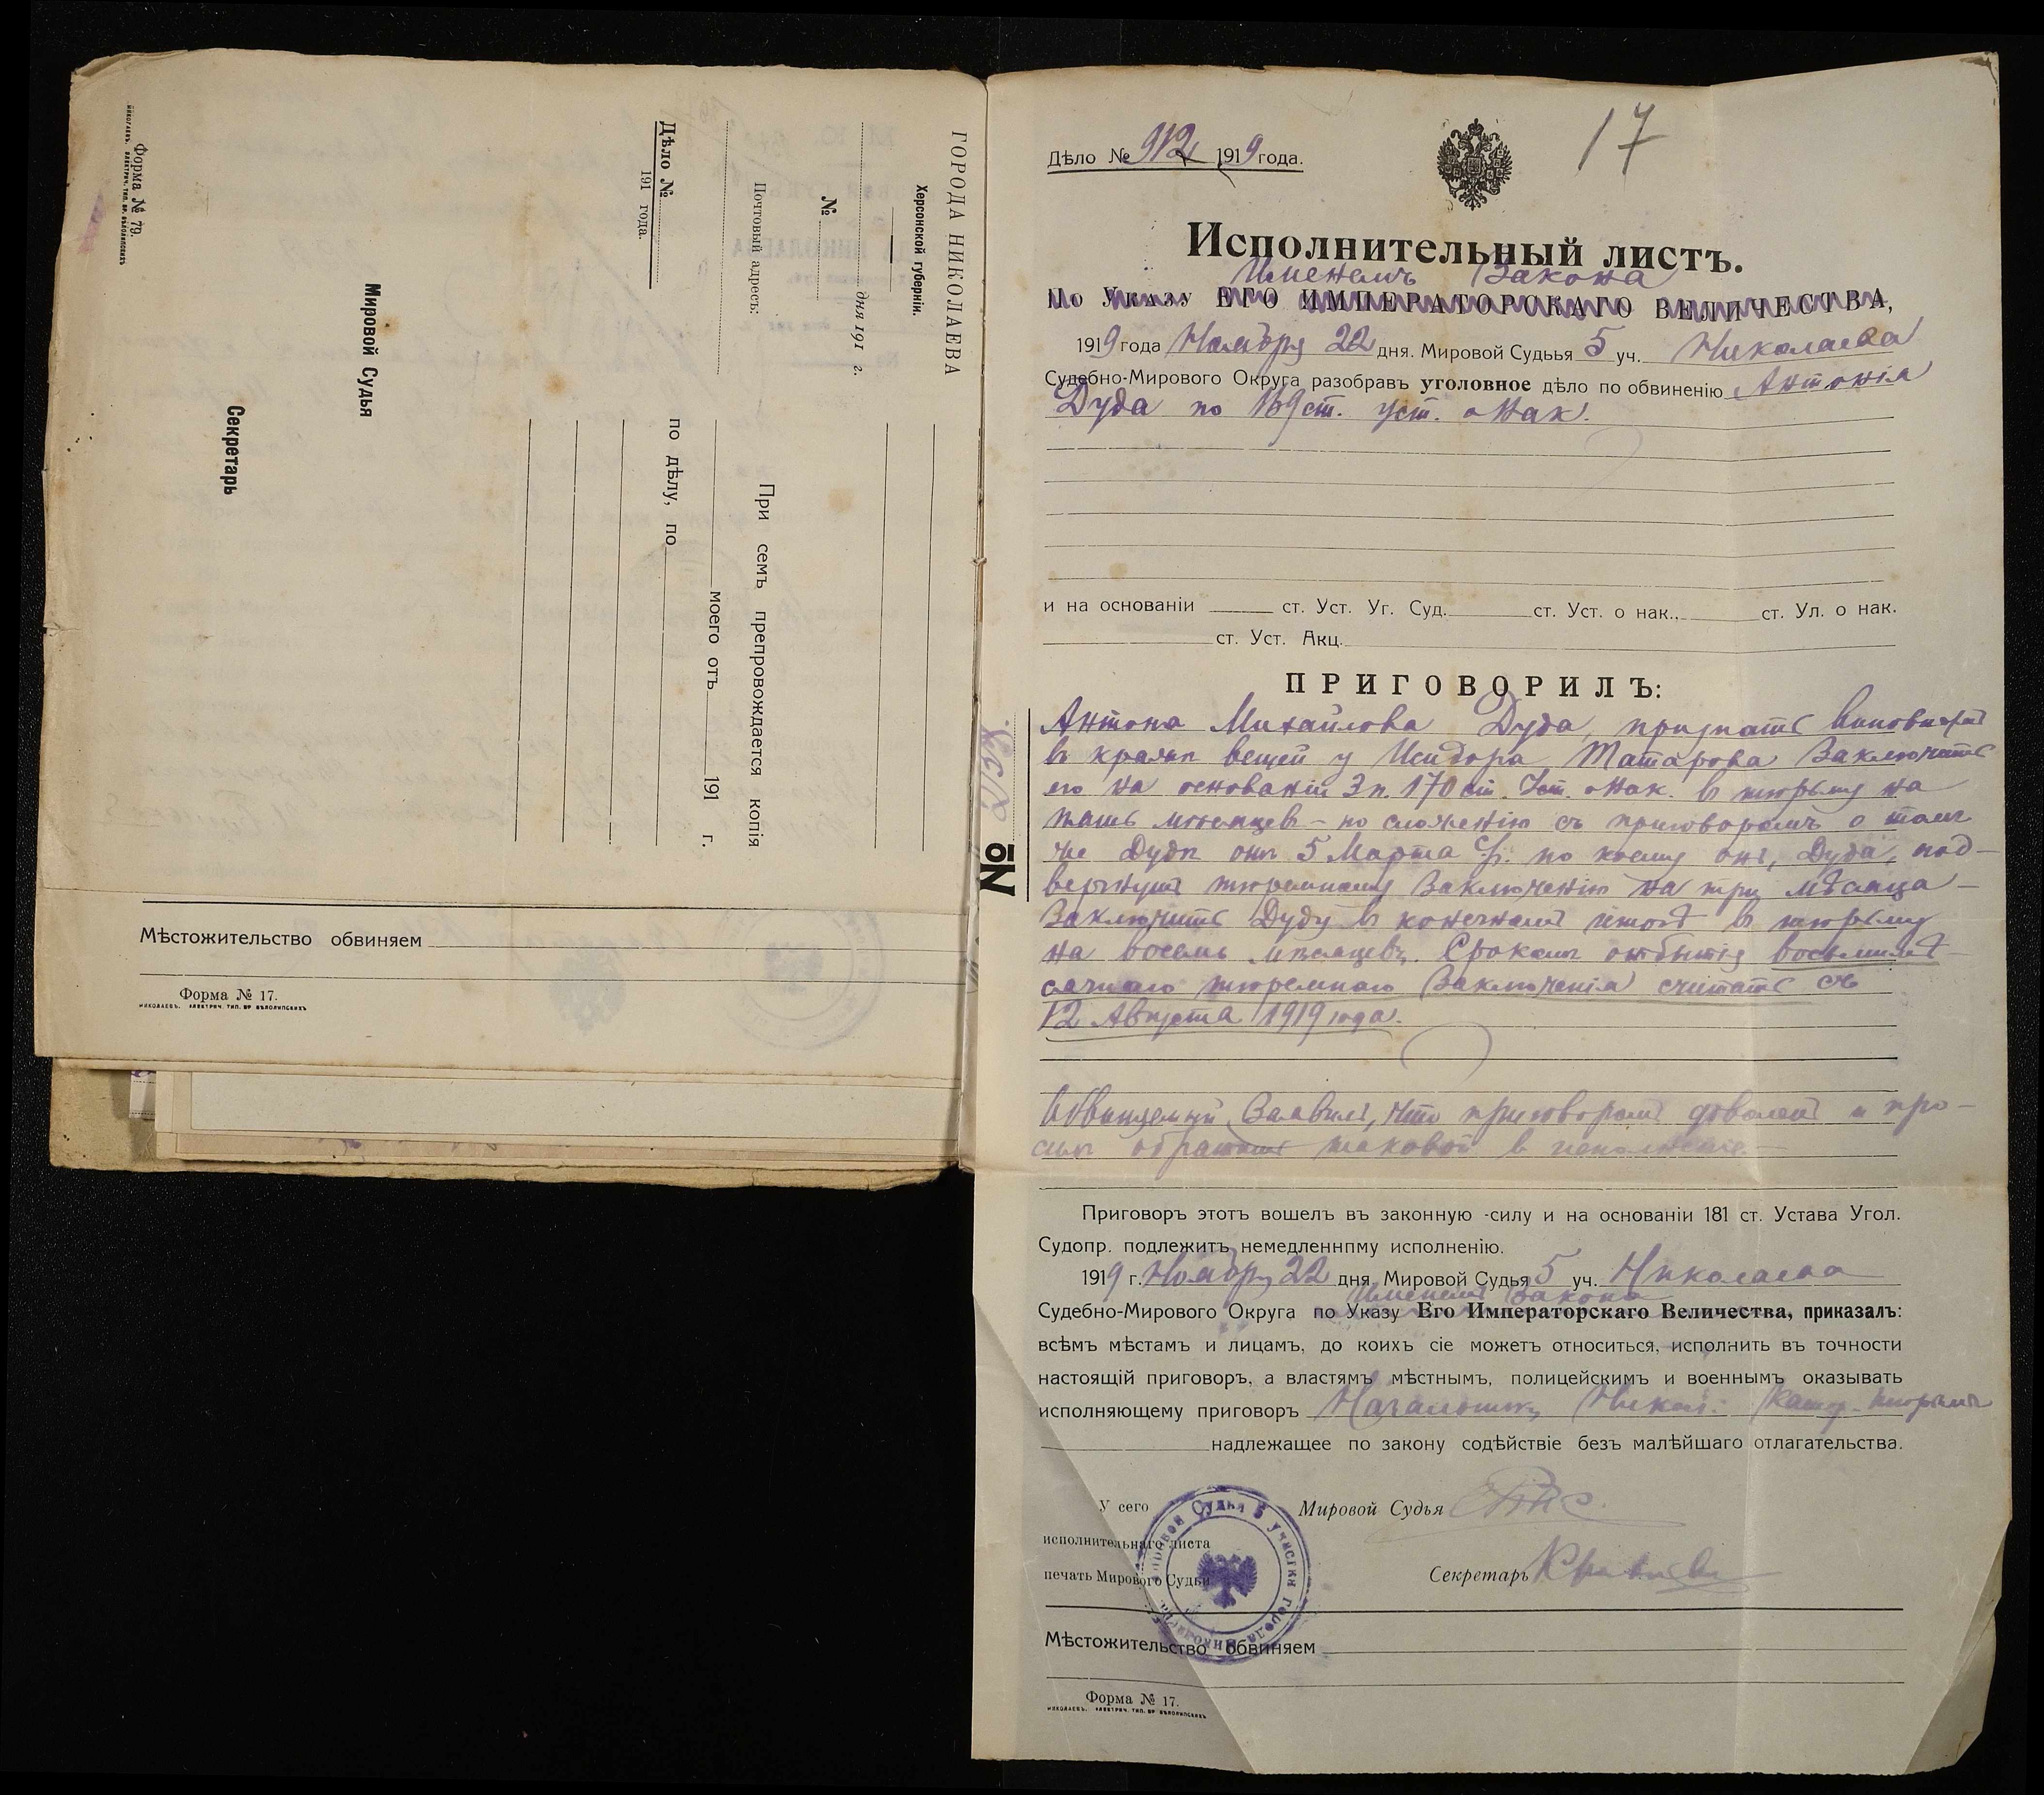 ГОРОДА НИКОЛАЕВА
Херсонской губерніи.
дня 191 г.
№
Почтовый адресъ:
Дѣло №
191 года.
При семъ препровождается копія
моего отъ 191 г.
по дѣлу, по
Мировой Судья
Секретарь
Форма № 79.
НИКОЛАЕВЪ. ЭЛЕКТРИЧ. ТИП. БР. БѢЛОЛИПСКИХЪ
Мѣстожительство обвиняем
Форма № 17.
НИКОЛАЕВЪ. ЭЛЕКТРИЧ. ТИП. БР БѢЛОЛИПСКИХЪ
№
17
Дѣло № 912 1919 года.
Исполнительный листъ.
Именемъ Закона
По Указу ЕГО ИМПЕРАТОРСКАГО ВЕЛИЧЕСТВА,
1919 года Ноября 22 дня. Мировой Судьья 5 уч. Николаева
Судебно-Мирового Округа разобравъ уголовное дѣло по обвиненію Антонія
Дуда по 169 ст. уст. о нак.
и на основаніи ст. Уст. Уг. Суд. ст. Уст. о нак., ст. Ул. о нак.
ст. Уст. Акц.
ПРИГОВОРИЛЪ:
Антона Михайлова Дуда, признать виновнымъ
въ кражѣ вещей у Исидора Татарова заключить
его на основаніи 3 п. 170 ст. Уст. о нак. в тюрьму на
пять мѣсяцев – по сложенію съ приговоромъ о томъ
же Дудѣ отъ 5 Марта с/г. по коему онъ, Дуда, под-
вергнутъ тюремному заключенію на три мѣсяца –
заключить Дуду в конечномъ итогѣ в тюрьму
на восемь мѣсяцевъ. Срокомъ отбытія восьмимѣ-
сячнаго тюремнаго заключенія считать съ
12 Августа 1919 года.
Обвиняемый заявилъ, что приговоромъ доволенъ и про-
ситъ обратить таковой в исполненіе
Приговоръ этотъ вошелъ въ законную -силу и на основаніи 181 ст. Устава Угол.
Судопр. подлежитъ немедленнпму исполненію.
1919 г. Ноября 22 дня, Мировой Судья 5 уч. Николаева
Именемъ Закона
Судебно-Мирового Округа по Указу Его Императорскаго Величества, приказалъ:
всѣмъ мѣстамъ и лицамъ, до коихъ сіе можетъ относиться, исполнить въ точности
настоящій приговоръ, а властямъ мѣстнымъ, полицейскимъ и военнымъ оказывать
исполняющему приговоръ Начальнику Никол. Катор. тюрьмы
надлежащее по закону содѣйствіе безъ малѣйшаго отлагательства.
У сего
исполнительнаго листа
печать Мирового Судьи
Мировой Судья 5 участки города Николаева
Мировой Судья
Секретарь
Мѣстожительство обвиняем
Форма № 17.
НИКОЛАЕВЪ. ЭЛЕКТРИЧ. ТИП. БР БѢЛОЛИПСКИХЪ